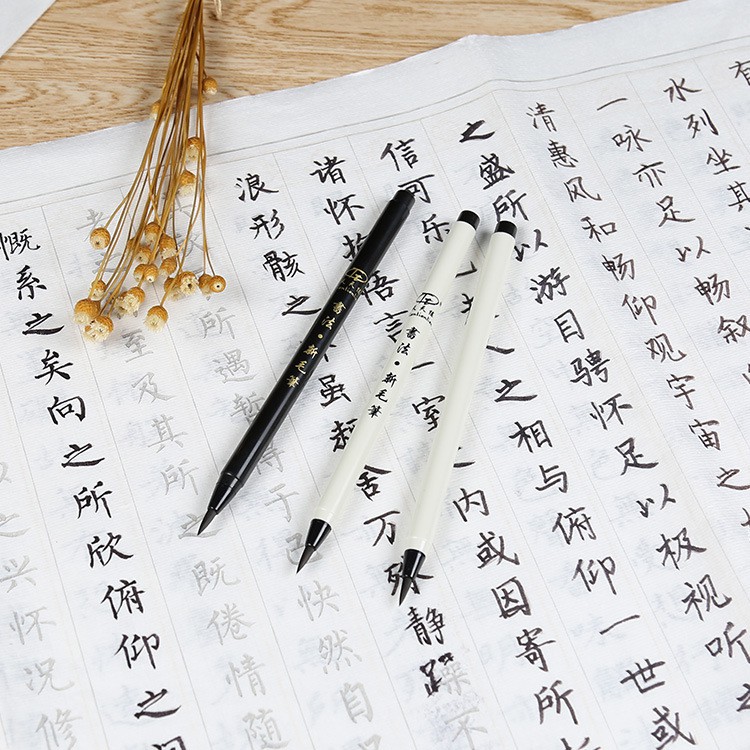 有
水列坐其
一咏亦足以畅叙
清惠风和畅仰观宇宙之
之盛所以游目骋怀足以极视听之
信可乐之相与俯仰一世或
诸怀抱悟言一室之内或因寄所
浪形骸之虽趣舍万殊静躁
所遇暂得于己快然自
老至及其所既倦情随
慨系之矣向之所欣俯仰之间
之兴怀况修
書法·新毛筆
書法·新毛筆